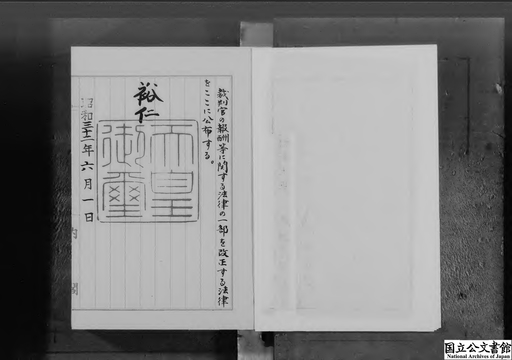 裁判官の報酬等に関する法律の一部を改正する法律
をここに公布する。
裕仁
天皇
御璽
昭和三十二年六月一日
内閣
国立公文書館
National Archives of Japan